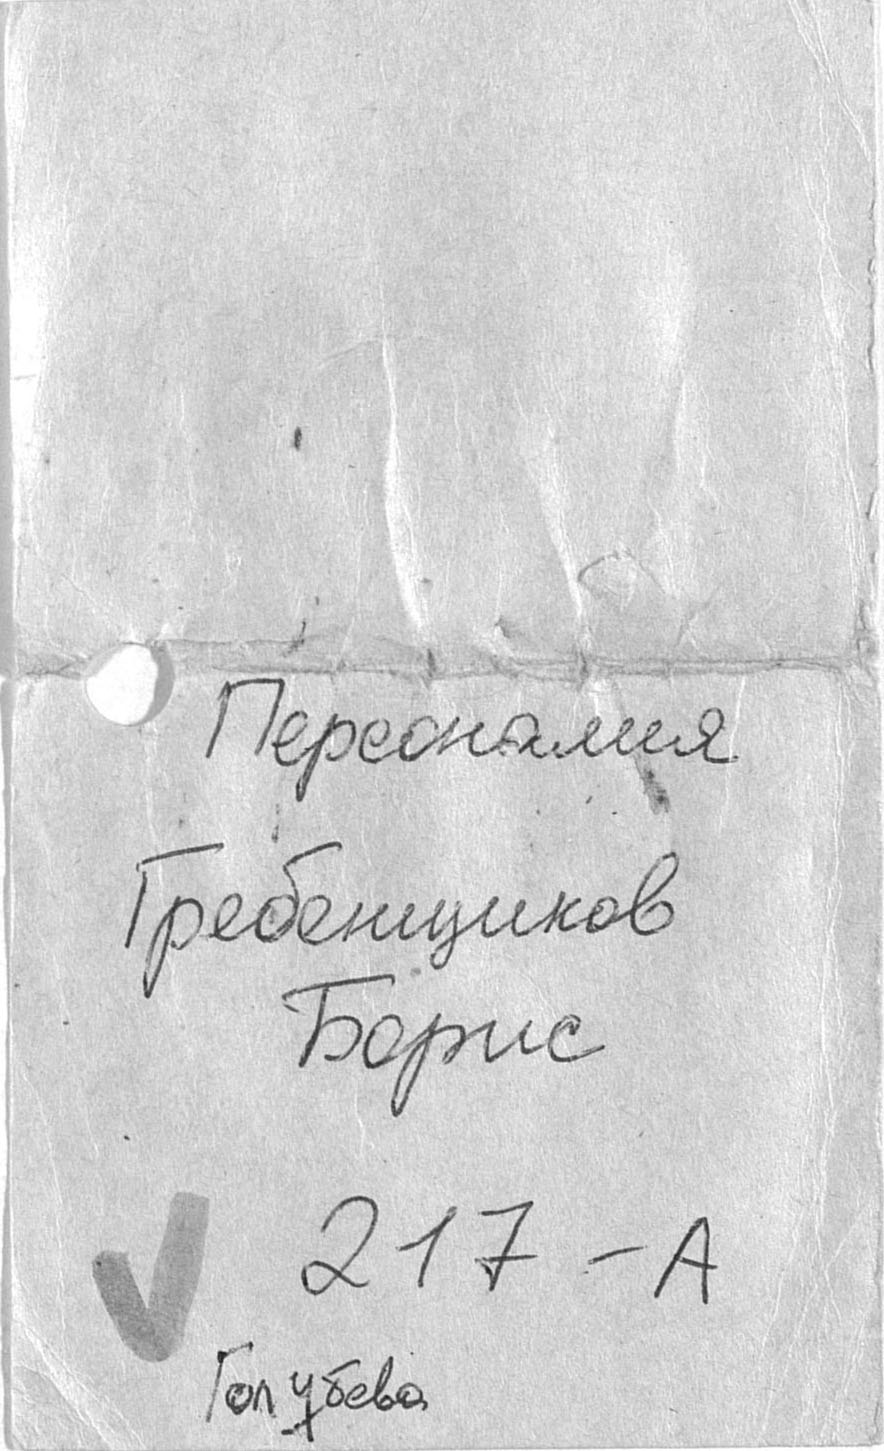 Персоналия
Гребенщиков
Борис
217-А
Голубева